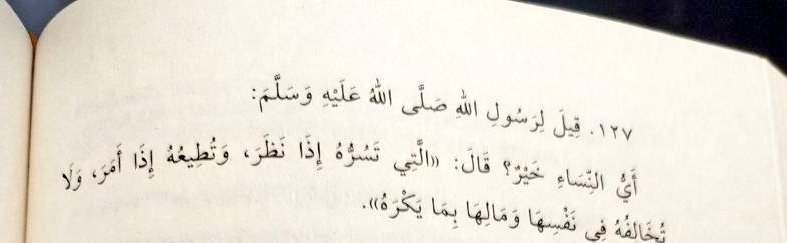 ١٢٧. قِيلَ لِرَسُولِ اللهِ صَلَّى اللهُ عَلَيْهِ وَسَلَّمَ:
أَيُّ النِّسَاءِ خَيْرٌ؟ قَالَ: «الَّتِي تَسُرُّهُ إِذَا نَظَرَ، وَتُطِيعُهُ إِذَا أَمَرَ، وَلَا
تُخَالِفُهُ فِي نَفْسِهَا وَمَالِهَا بِمَا يَكْرَهُ».